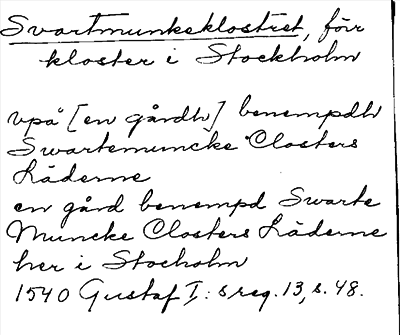 Svartmunkeklostret, förr
kloster i Stockholm
vpå [en gårdh] benempdh
Swartemuncke Closters
Läderne
en gård benempd Swarte
Muncke Closters Läderne
her i Stocholm
1540 Gustaf I: s reg. 13, s. 48.